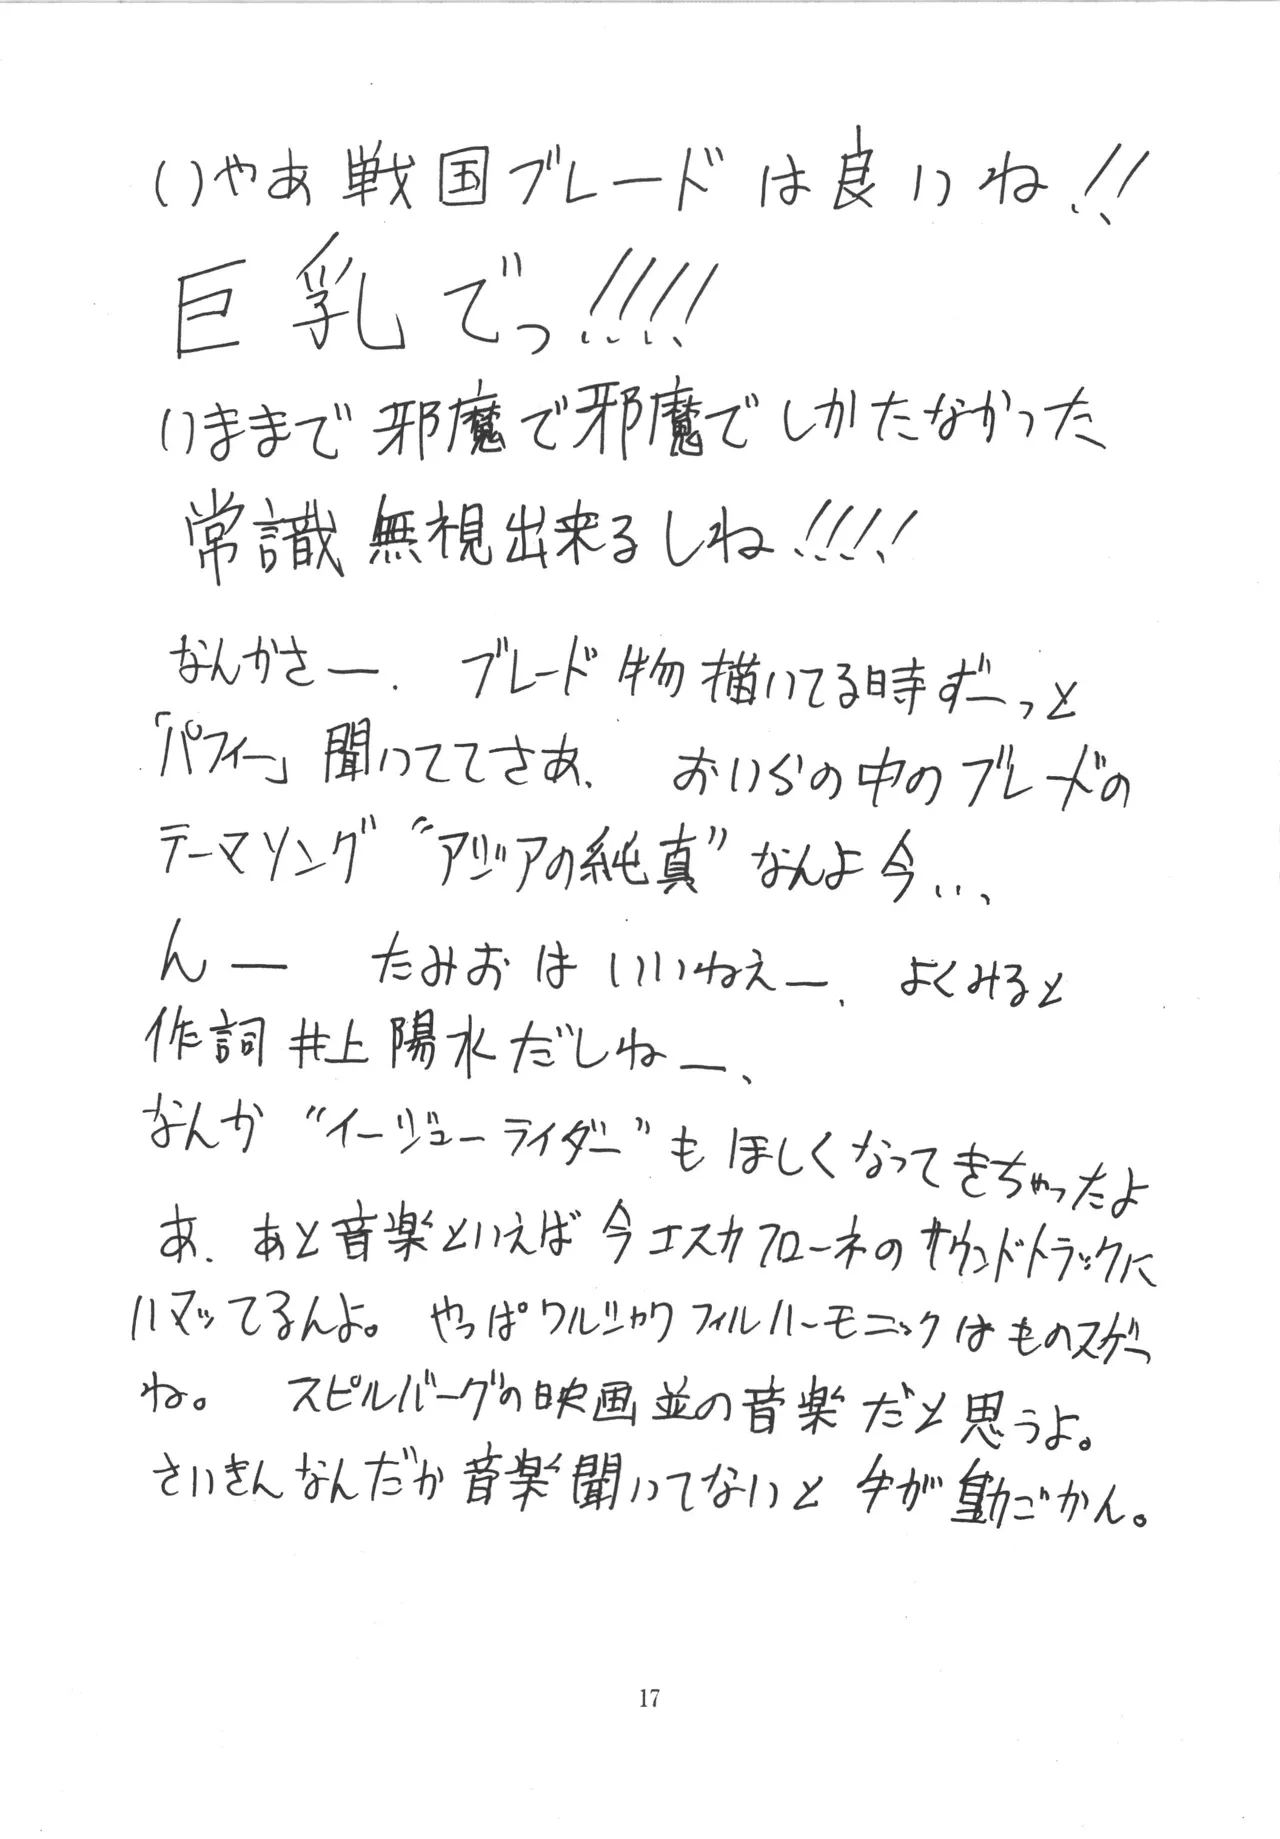 いやあ戦国ブレードは良いね!!
巨乳でっ!!!!
いままで邪魔で邪魔でしかたなかった
常識無視出来るしね!!!!
なんかさー、ブレード物描いてる時ずーっと
「パフィー」聞いててさあ、おいらの中のブレードの
テーマソング“アジアの純真”なんよ今...、
んー たみおはいいねえー、よくみると
作詞井上陽水だしねー、
なんか“イージューライダー”もほしくなってきちゃったよ
あ、あと音楽といえば今エスカフローネのサウンドトラックに
ハマッてるんよ。やっぱワルシャワフィルハーモニックはものスゲー
ね。スピルバーグの映画並の音楽だと思うよ。
さいきんなんだか音楽聞いてないと手が動ごかん。
17